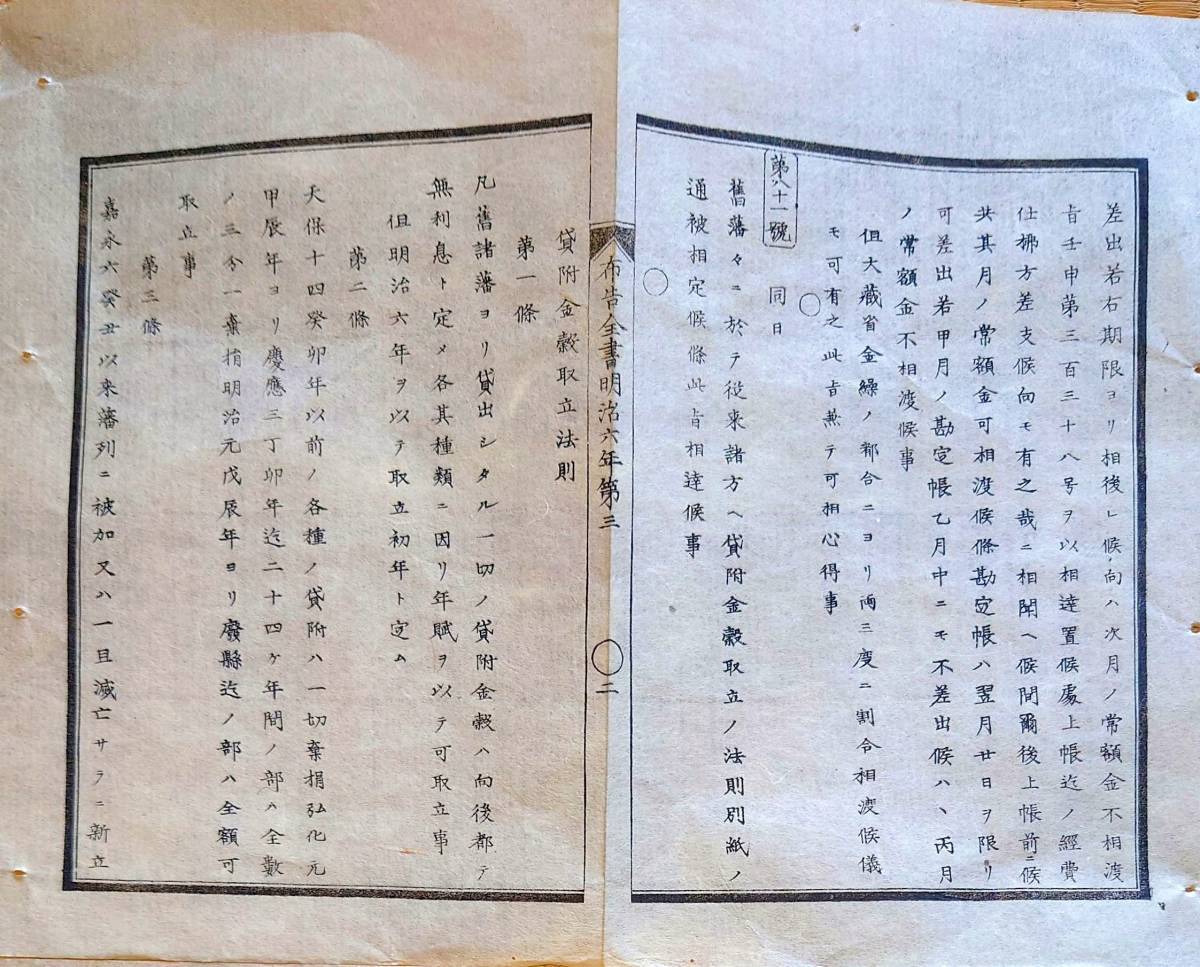 差出若右期限ヨリ相後レ候向ハ次月ノ常額金不相渡
旨壬申第三百三十八号ヲ以相達置候處上帳迄ノ經費
仕拂方差支候向モ有之哉ニ相聞ヘ候間爾後上帳前ニ候
共其月ノ常額金可相渡候條勘定帳ハ翌月廿日ヲ限リ
可差出若甲月ノ勘定帳乙月中ニモ不差出候ハヽ丙月
ノ常額金不相渡候事
但大藏省金繰ノ都合ニヨリ両三度ニ割合相渡候儀
モ可有之此旨兼テ可相心得事
〇
第八十一號 同日
舊藩々ニ於テ従来諸方ヘ貸附金穀取立ノ法則別紙ノ
通被相定候條此旨相達候事
〇
布告全書明治六年第三 〇二
貸附金穀取立法則
第一條
凡舊諸藩ヨリ貸出シタル一切ノ貸附金穀ハ向後都テ
無利息ト定メ各其種類ニ因リ年賦ヲ以テ可取立事
但明治六年ヲ以テ取立初年ト定ム
第二條
天保十四癸卯年以前ノ各種ノ貸附ハ一切棄捐弘化元
甲辰年ヨリ慶應三丁卯年迄二十四ケ年間ノ部ハ全數
ノ三分一棄捐明治元戊辰年ヨリ廢縣迄ノ部ハ全額可
取立事
第三條
嘉永六癸丑以来藩列ニ被加又ハ一旦滅亡サラニ新立